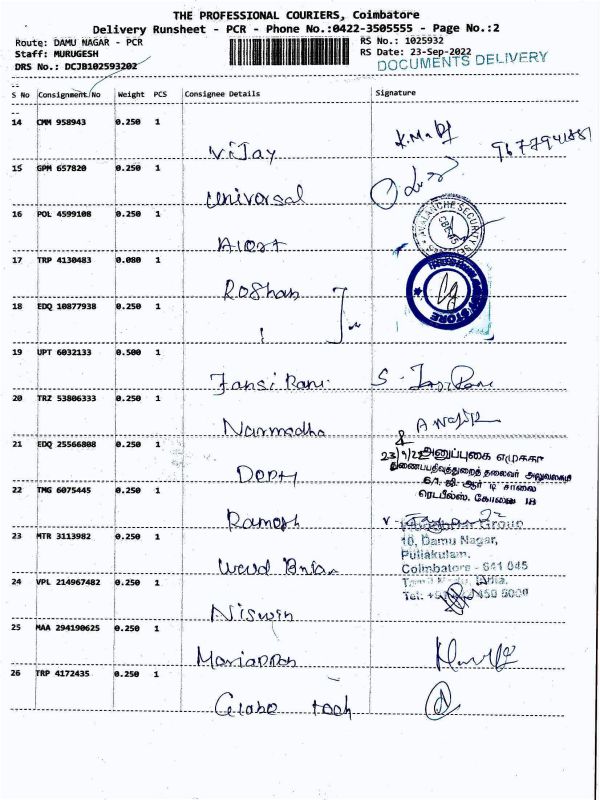 THE PROFESSIONAL COURIERS, Coimbatore
Delivery Runsheet - PCR - Phone No.:0422-3505555 - Page No.:2
Route: DAMU NAGAR - PCR
RS No.: 1025932
Staff: MURUGESH
RS Date: 23-Sep-2022
DRS No.: DCJB102593202
DOCUMENTS DELIVERY
S No Consignment No Weight PCS Consignee Details Signature
14 CMM 958943 0.250 1
Vijay
9677941881
15 GPM 657820 0.250 1
Universal
16 POL 4599108 0.250 1
AVALANCHE SECURITY
CBE-45
17 TRP 4130483 0.080 1
Roshan
STORE
18 EDQ 10877938 0.250 1
19 UPT 6032133 0.500 1
Jansi Rani
20 TRZ 53806333 0.250 1
Narmadha
21 EDQ 25566808 0.250 1
23/9/22
துணைப்பதிவுத்துறைத் தலைவர் அலுவலகம்
22 TMG 6075445 0.250 1
Ramesh
Group
23 MTR 3113982 0.250 1
10, Damu Nagar,
Puliakulam,
Coimbatore - 641 045
24 VPL 214967482 0.250 1
Niswin
25 MAA 294190625 0.250 1
Mariappan
26 TRP 4172435 0.250 1
Globe tech